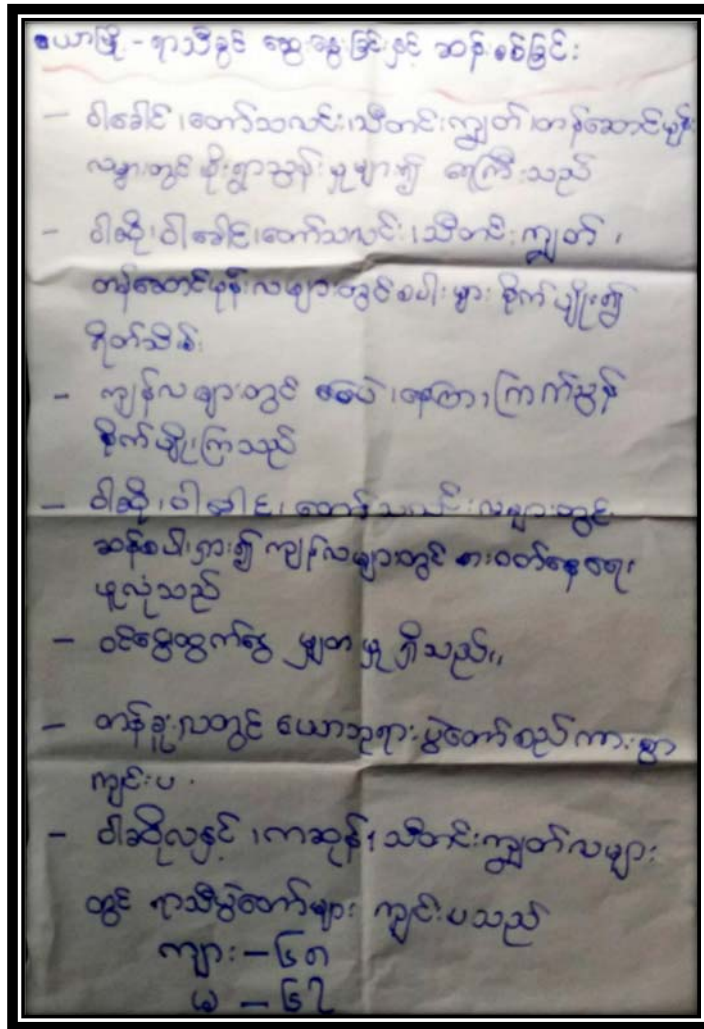 ယောမြို့ - ရာသီခွင် ဆွေးနွေးခြင်းနှင့် ဆန်းစစ်ခြင်း
- ဝါခေါင်၊ တော်သလင်း၊ သီတင်းကျွတ်၊ တန်ဆောင်မုန်း
လများတွင် မိုးရွာသွန်းမှုများ၍ ရေကြီးသည်
- ဝါဆို၊ ဝါခေါင်၊ တော်သလင်း၊ သီတင်းကျွတ်၊
တန်ဆောင်မုန်းလများတွင် စပါးများ စိုက်ပျိုး၍
ရိတ်သိမ်း
- ကျန်လများတွင် မြေပဲ၊ နေကြာ၊ ကြက်သွန်
စိုက်ပျိုးကြသည်
- ဝါဆို၊ ဝါခေါင်၊ တော်သလင်းလများတွင်
ဆန်စပါးရှား၍ ကျန်လများတွင် စားဝတ်နေရေး
ဖူလုံသည်
- ဝင်ငွေထွက်ငွေ မျှတမှု ရှိသည်။
- တန်ခူးလတွင် ယောဘုရားပွဲတော် စည်ကားစွာ
ကျင်းပ
- ဝါဆိုလနှင့် ၊ ကဆုန်၊ သီတင်းကျွတ်လများ
တွင် ရာသီပွဲတော်များ ကျင်းပသည်
ကျား - ၆၈
မ - ၆၇